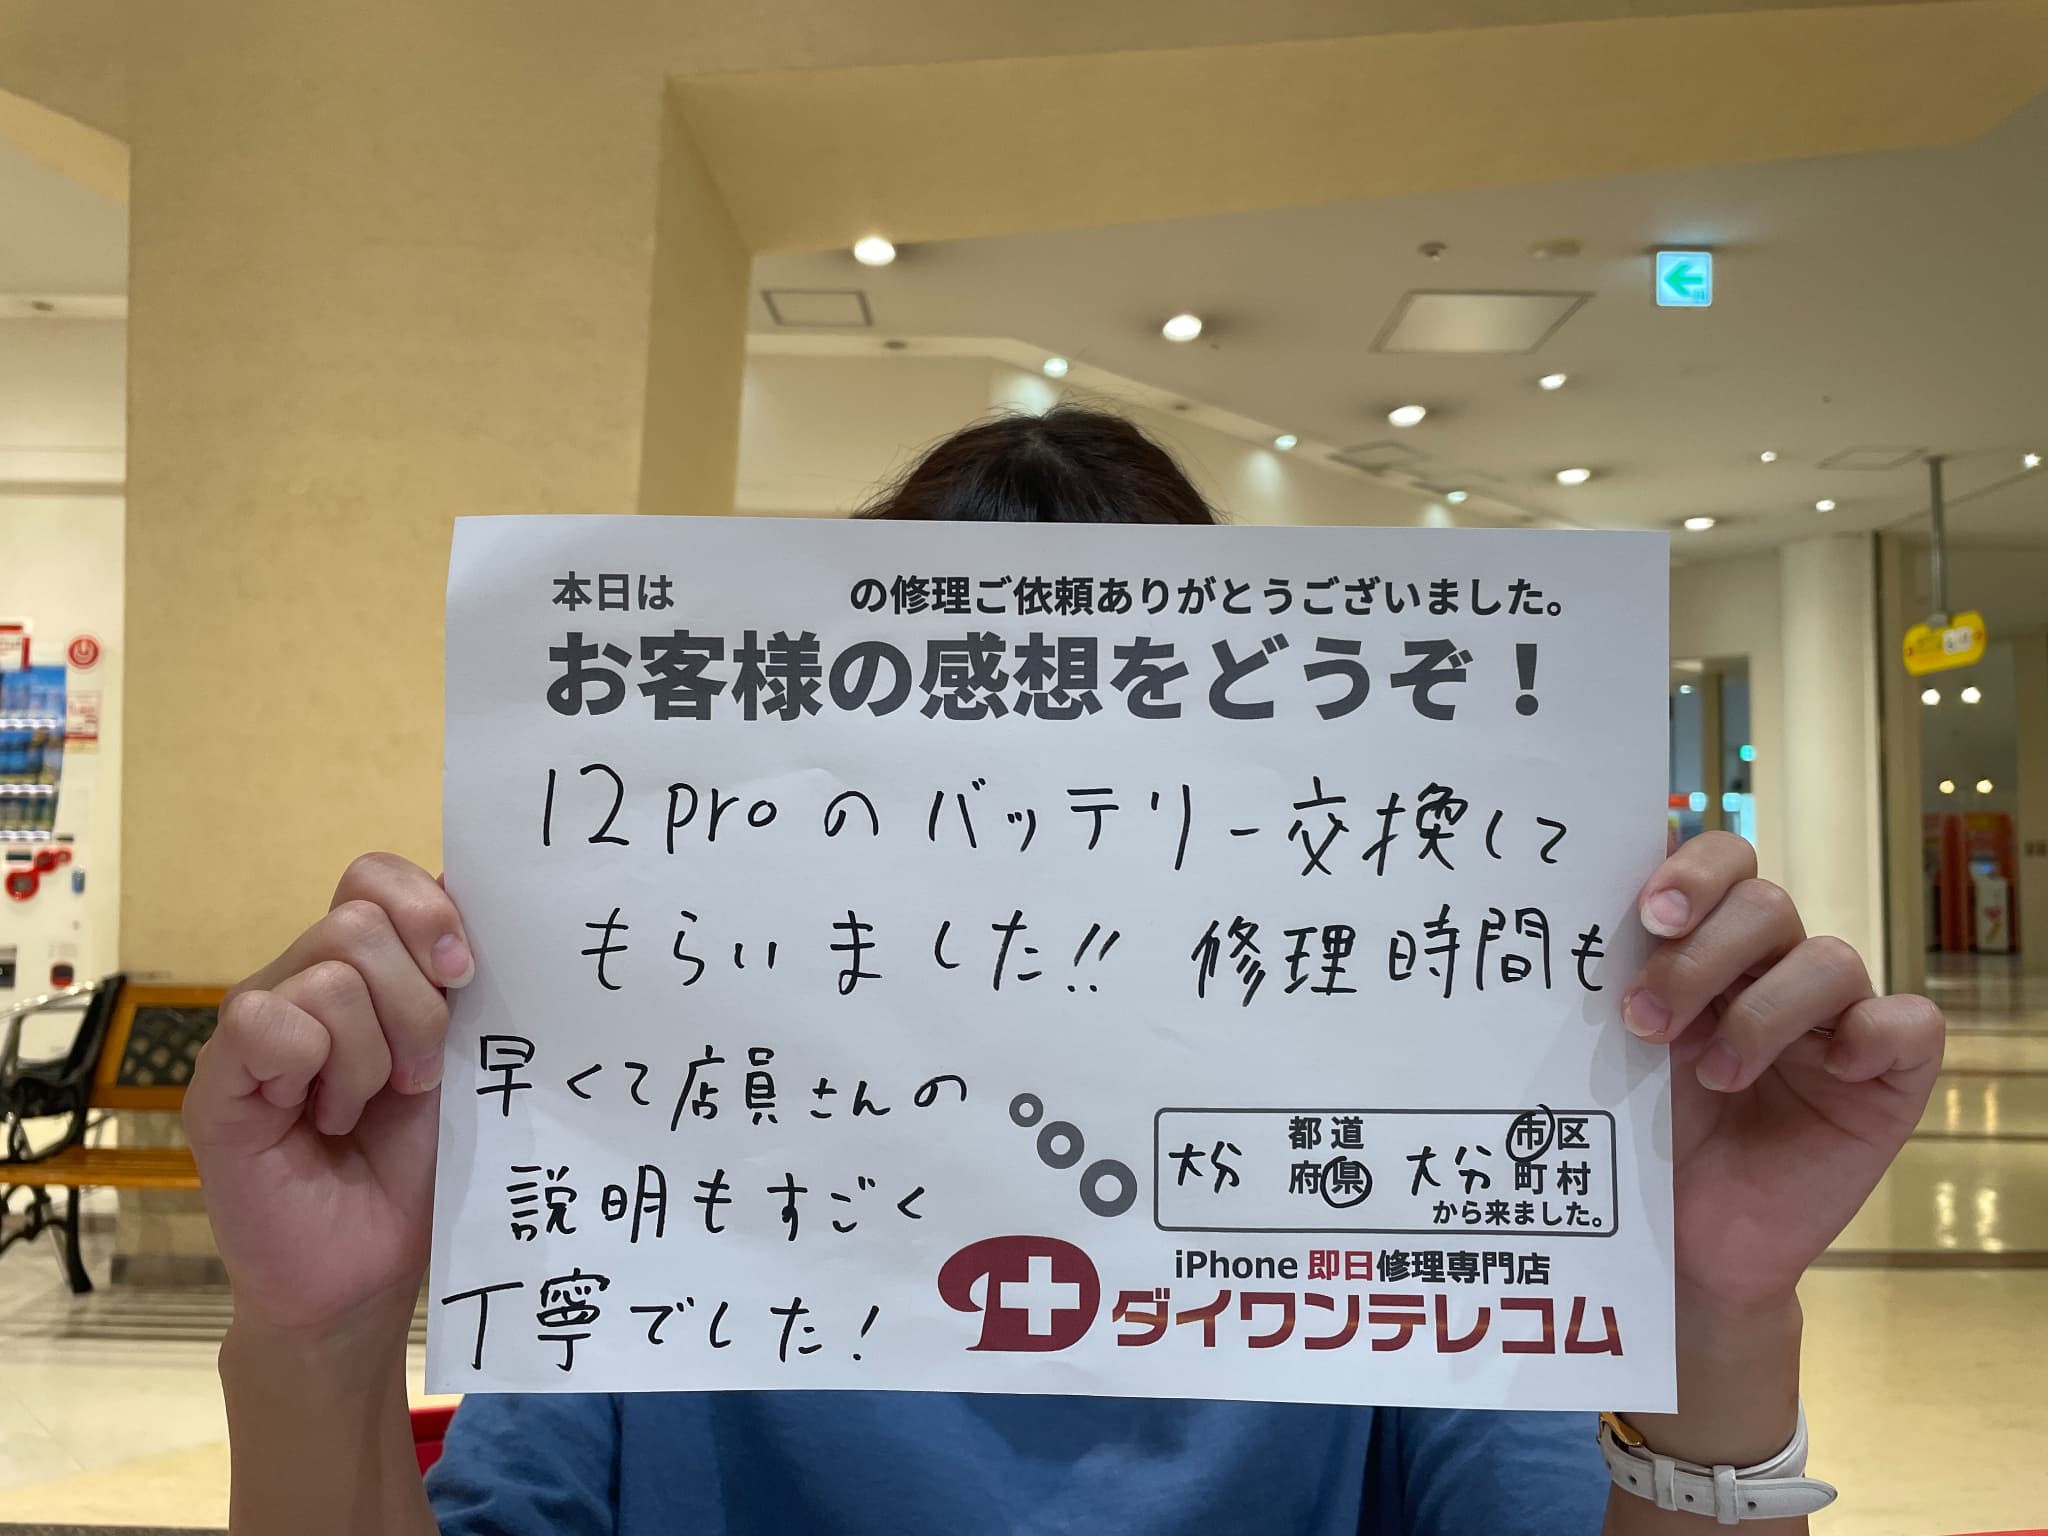 本日は　の修理ご依頼ありがとうございました。
お客様の感想をどうぞ！
12proのバッテリー交換して
もらいました!! 修理時間も
早くて店員さんの
説明もすごく
丁寧でした！
大分 都道府県 大分 市区町村
から来ました。
iPhone 即日修理専門店
ダイワンテレコム